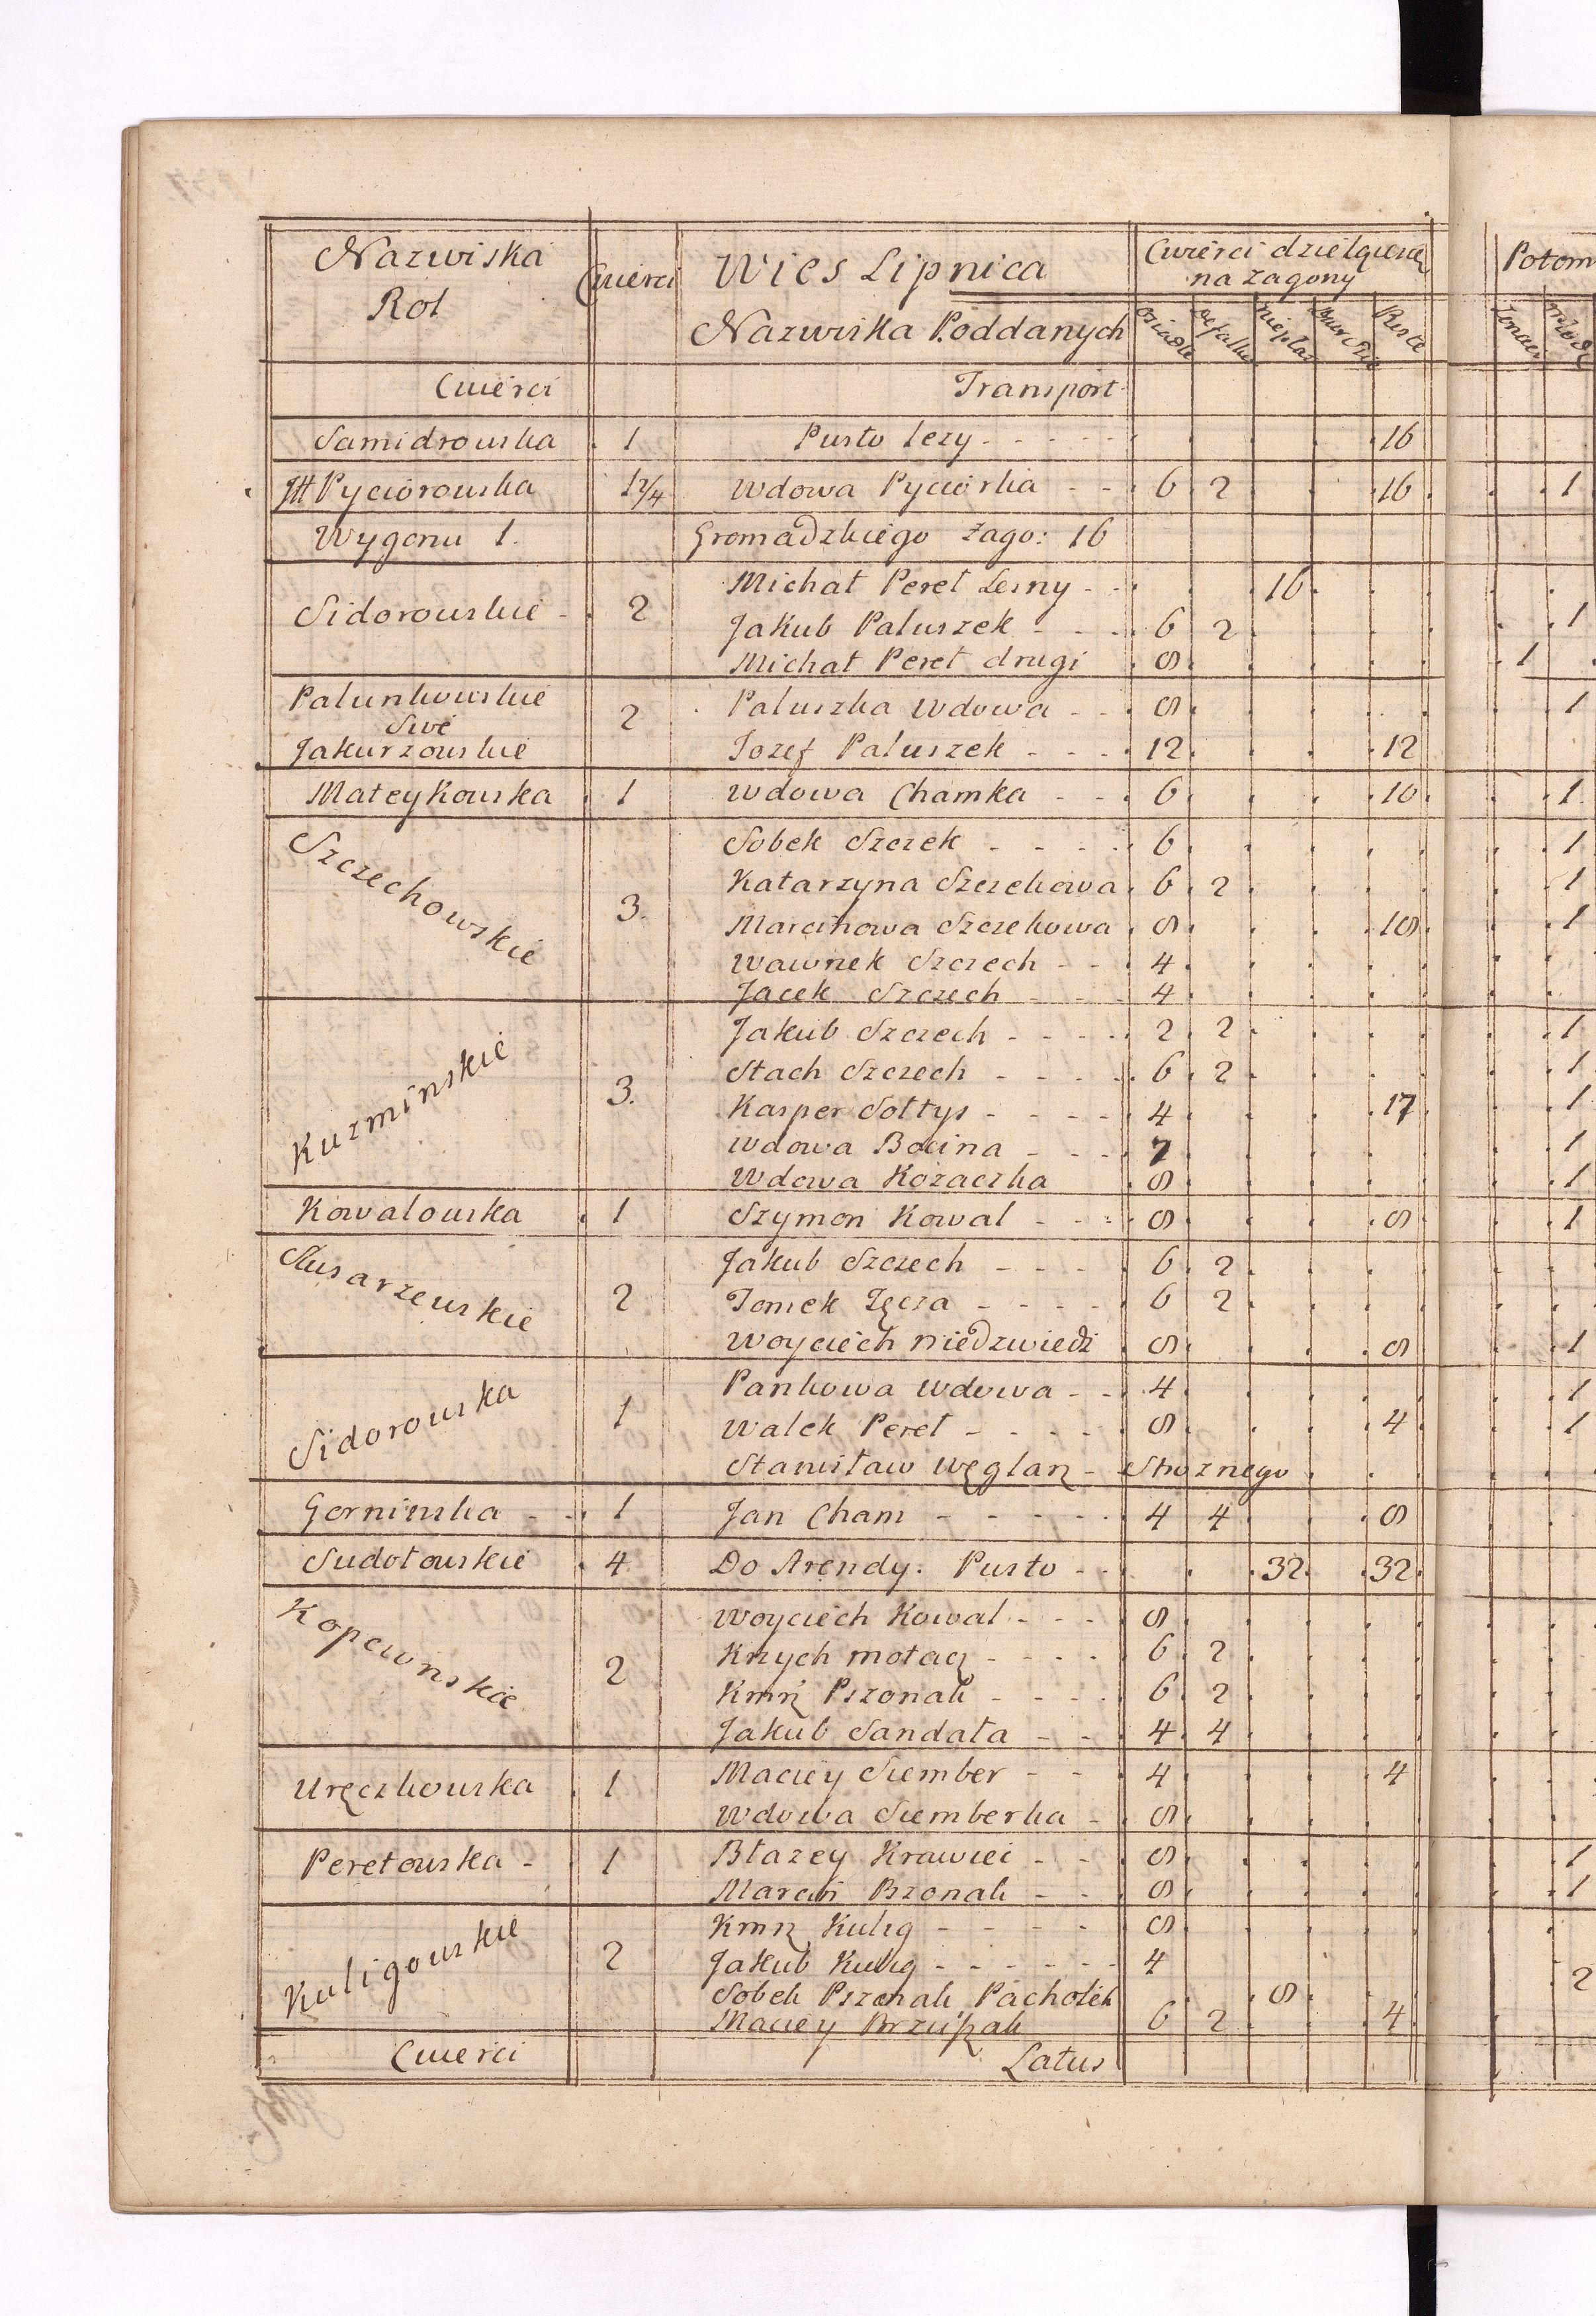 Nazwiska Rol Cwierci Wies Lipnica Cwierci dzielących na zagony Potom
Nazwiska Poddanych osiadłe defalku niepłac Puste
Cwierci Transport
Samidrowska 1 Pusto lezy 16
Pyciorowska 1 2/4 Wdowa Pyciorka 6 2 16 1
Wygonu 1. Gromadzkiego Zago: 16
Sidorowskie 2 Michał Peret Lesny 16
Jakub Paluszek 6 2 1
Michał Peret drugi 8 1
Palunkowskie 2 Paluszka Wdowa 8 1
Sive
Jakurzowskie Jozef Paluszek 12 12
Mateykowska 1 Wdowa Chamka 6 10 1
Szczechowskie 3. Sobek Szczek 6 1
Katarzyna Szczekowa 6 2 1
Marcinowa Szczekowa 8 18 1
Wawnek Szczech 4
Jacek Szczech 4
Kuzminskie 3. Jakub Szczech 2 2 1
Stach Szczech 6 2 1
Kasper Sołtys 4 17 1
Wdowa Bocina 7 1
Wdowa Kozaczka 8 1
Kowalowska 1 Szymon Kowal 8 8 1
Slusarzewskie 2 Jakub Szczech 6 2
Tomek Tęcza 6 2
Woyciech Niedzwiedz 8 8 1
Sidorowska 1 Pankowa Wdowa 4 1
Walek Peret 8 4 1
Stanisław Węglarz Stroznego
Gorninska 1 Jan Cham 4 4 8
Sudołowskie 4 Do Arendy. Pusto 32 32
Kopcwinskie 2 Woyciech Kowal 8
Krzych Motacz 6 2
Kmrz Pszonak 6 2
Jakub Sandała 4 4
Uręczkowska 1 Maciey Siember 4 4
Wdowa Siemberka 8
Peretowska 1 Błazey Krawiec 8 1
Marcin Pszonak 8 1
Kuligowskie 2 Kmrz Kulig 8
Jakub Kulig 4 2
Sobek Pszonak Pachołek 8
Maciey 6 2 4
Cwierci Latus